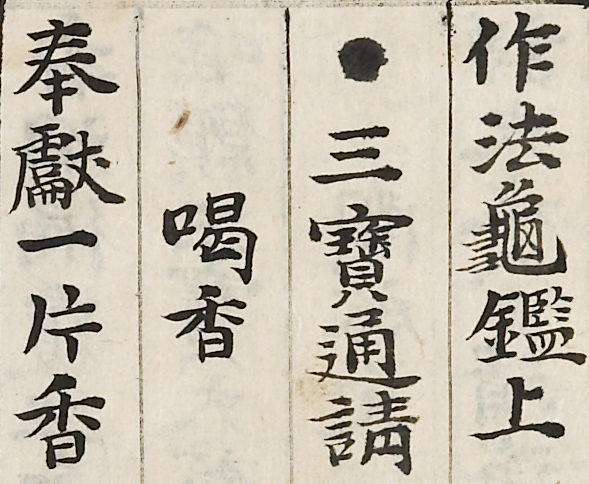 作法龜鑑上
●三寶通請
喝香
奉獻一片香